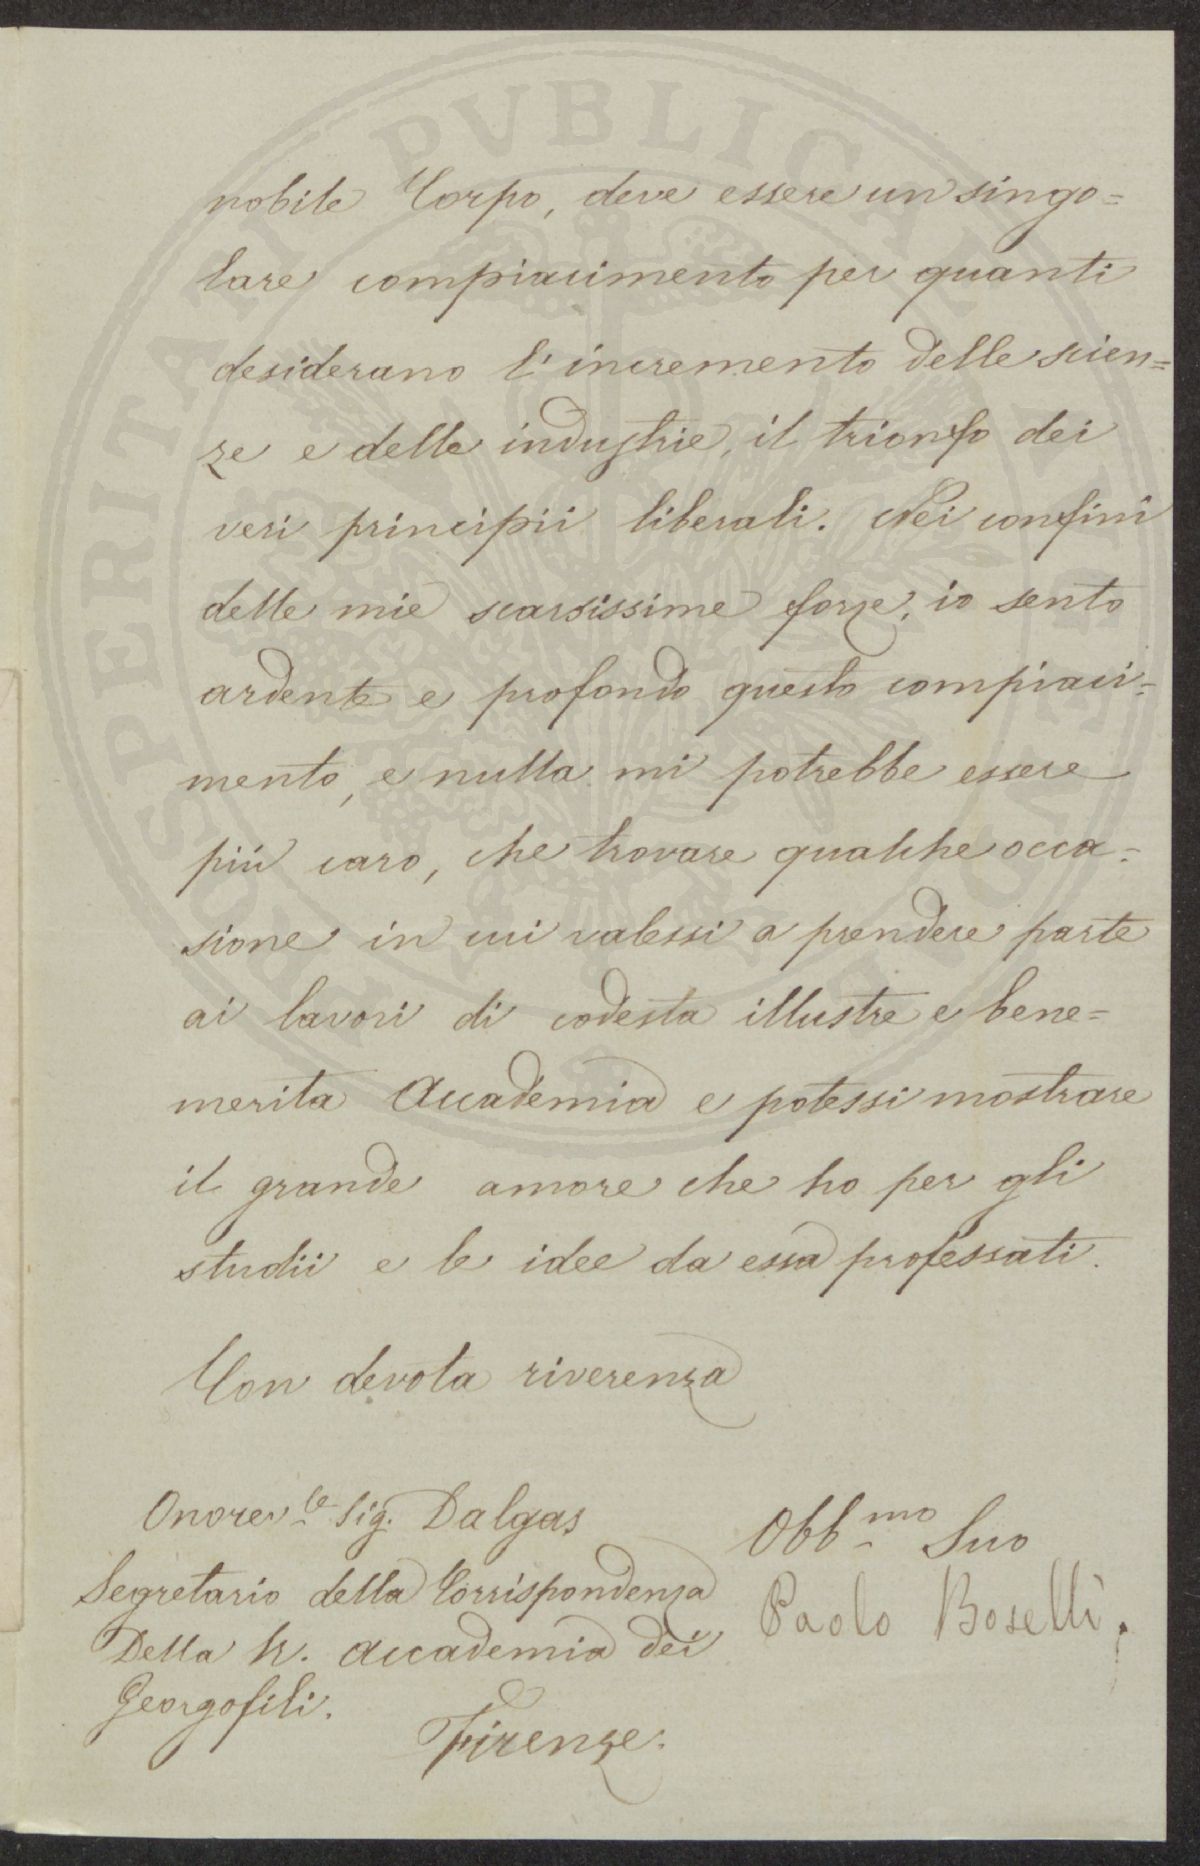 nobile Corpo, deve essere un singo=
lare compiacimento per quanti
desiderano l'incremento delle scien=
ze e delle industrie, il trionfo dei
veri principii liberali. Nei confini
delle mie scarsissime forze, io sento
ardente e profondo questo compiaci=
mento, e nulla mi potrebbe essere
più caro, che trovare qualche occa=
sione in cui valessi a prendere parte
ai lavori di codesta illustre e bene=
merita Accademia e potessi mostrare
il grande amore che ho per gli
studii e le idee da essa professati.
Con devota riverenza
Onorev.le Sig. Dalgas
Segretario della Corrispondenza
Della R. Accademia dei
Georgofili.
Firenze.
Obb.mo Suo
Paolo Boselli.
PROSPERITATI PVBLICAE AVGENDAE